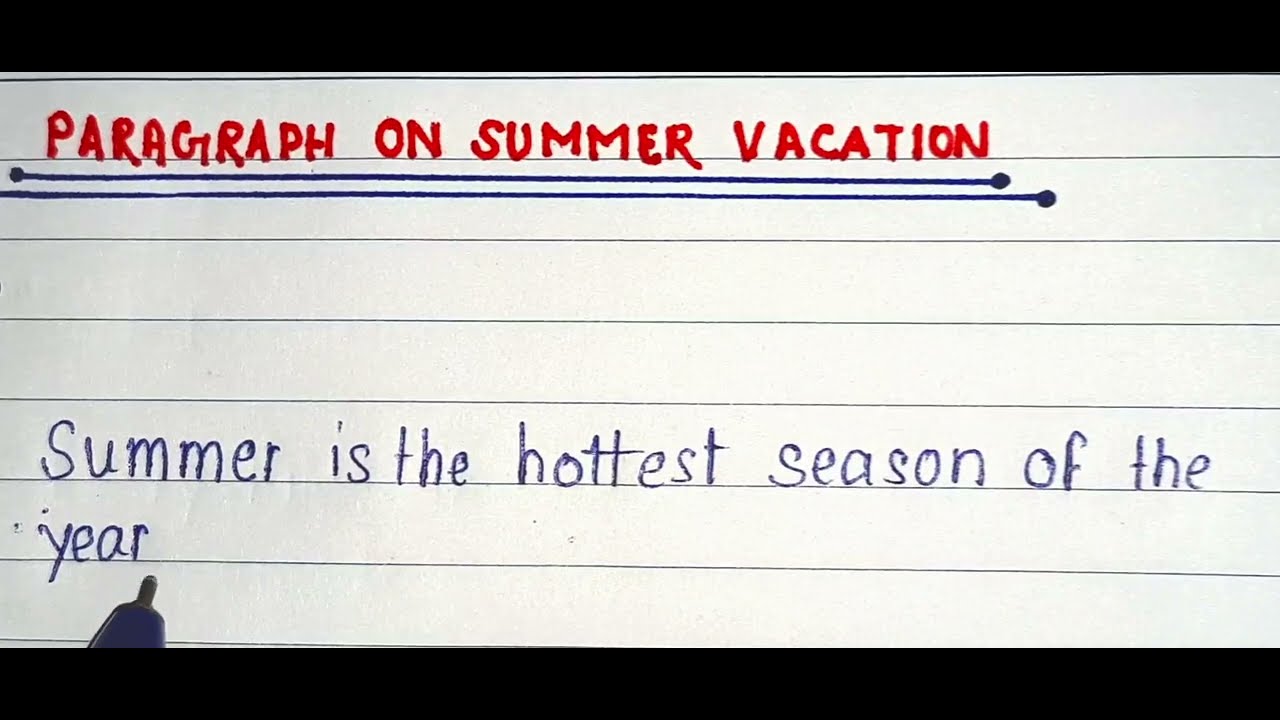 PARAGRAPH ON SUMMER VACATION
Summer is the hottest season of the
year